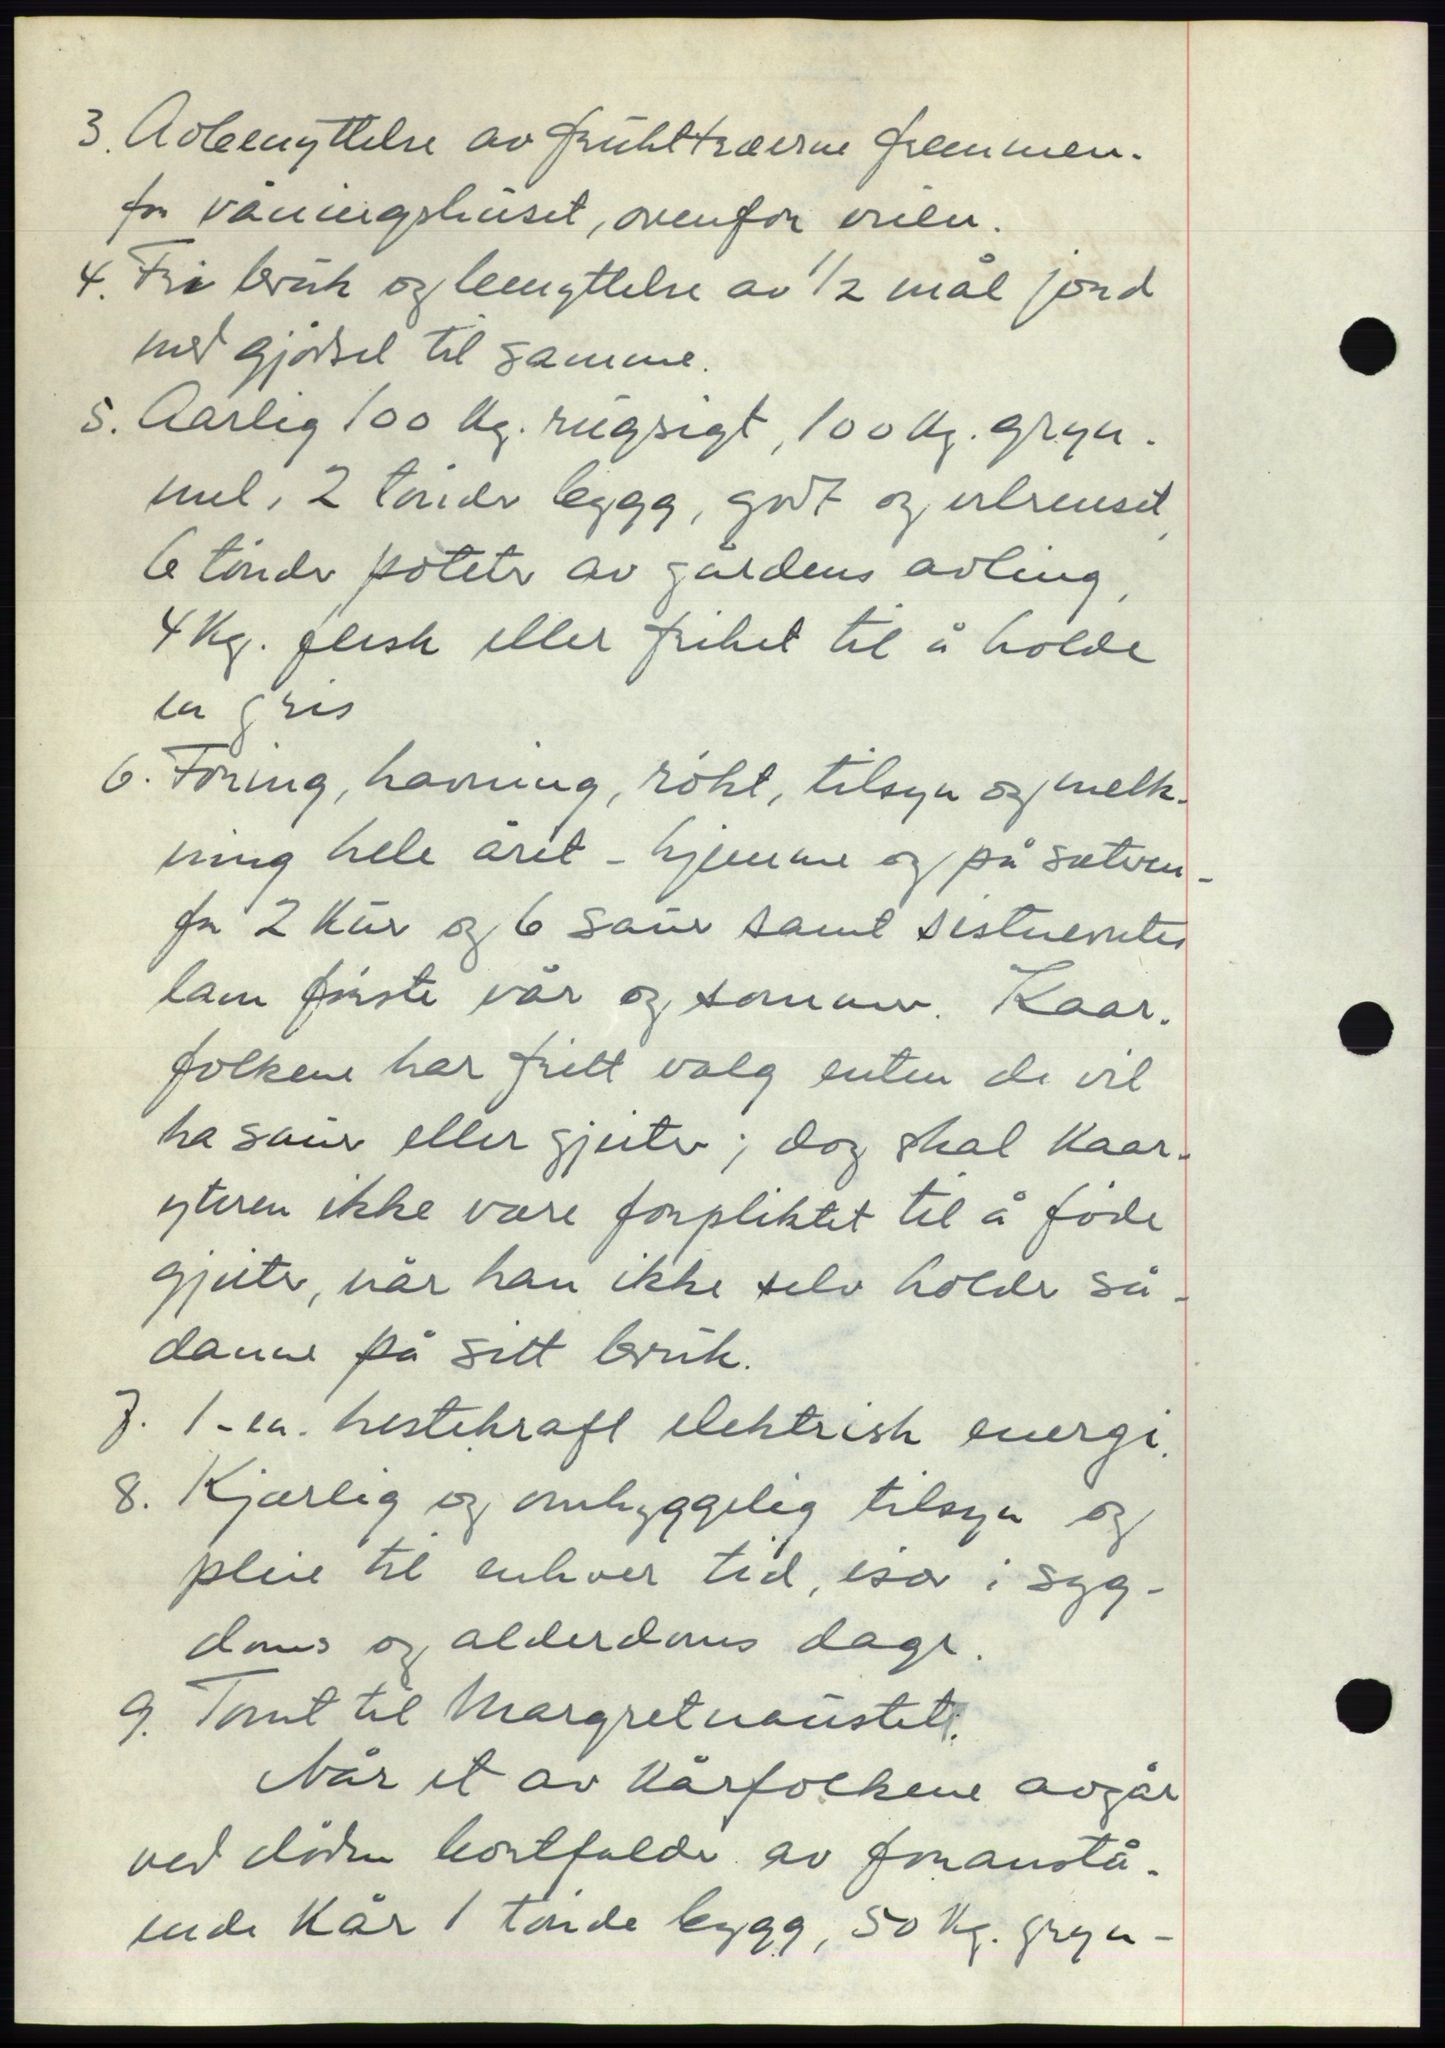 3. Avbenyttelse av frukttrærne fremmen-
for våningshuset, ovenfor veien.
4. Fri bruk og benyttelse av 1/2 mål jord
med gjødsel til samme.
5. Aarlig 100 kg. rugsigt, 100 kg. gryn-
mel, 2 tønder bygg, godt og velrenset,
6 tønder poteter av gårdens avling,
4 kg. flesk eller frihet til å holde
en gris
6. Foring, havning, røkt, tilsyn og melk-
ning hele året - hjemme og på sæteren -
for 2 kur og 6 sauer samt sistnevntes
lam første vår og sommer. Kaar-
folkene har fritt valg enten de vil
ha sauer eller gjeiter; dog skal kaar-
yteren ikke være forpliktet til å føde
gjeiter, når han ikke selv holder så-
danne på sitt bruk.
7. 1 - en. hestekraft elektrisk energi.
8. Kjærlig og omhyggelig tilsyn og
pleie til enhver tid, især i syg-
doms og alderdoms dage.
9. Tomt til Margretnaustet.
Når et av kårfolkene avgår
ved døden bortfalder av foranstå-
ende kår 1 tønde bygg, 50 kg. gryn-